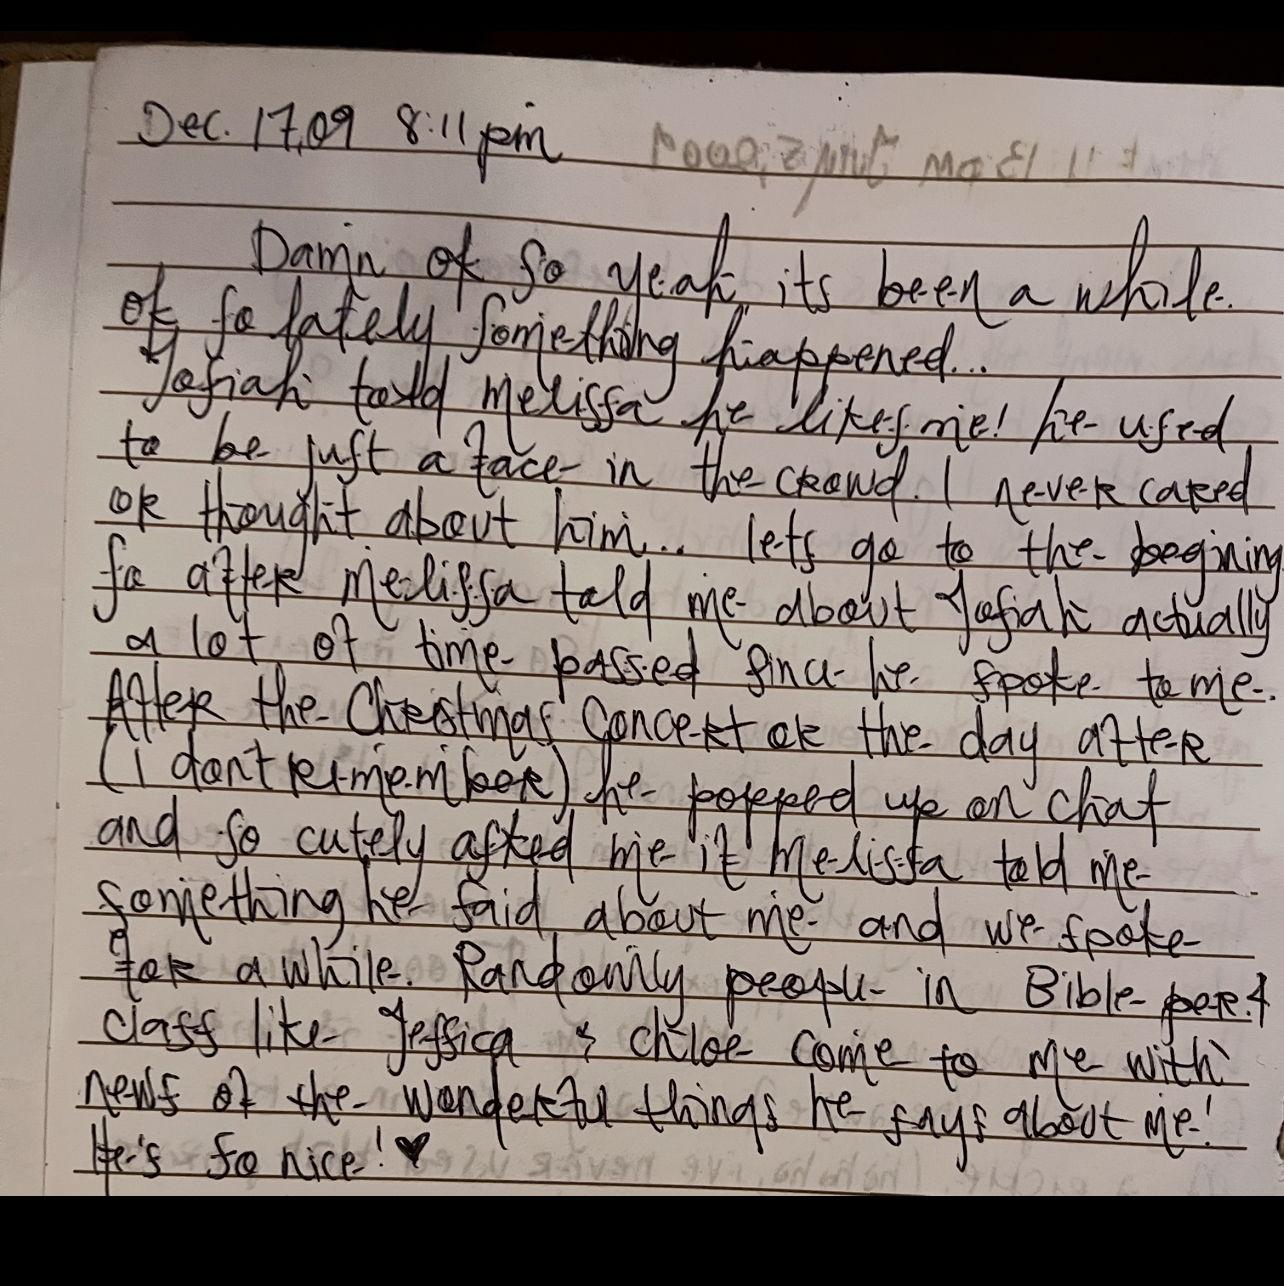 Dec. 17, 09 8:11 pm
Damn ok so yeah, its been a while.
ok so lately something happened...
Josiah told Melissa he likes me! he used
to be just a face in the crowd. I never cared
or thought about him... lets go to the begining
so after Melissa told me about Josiah actually
a lot of time passed since he spoke to me.
After the Christmas Concert or the day after
(I dont remember) he popped up on chat
and so cutely asked me if Melissa told me
something he said about me and we spoke
for a while. Randomly people in Bible per. 4
class like Jessica & Chloe come to me with
news of the wonderful things he says about me!
He's so nice! ♥